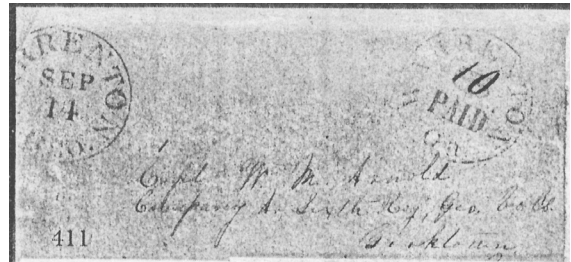 ARRENTON
SEP
14
WARRENTON
10
PAID
Ga.
Capt W. M. Arnold
Company A. Sixth Reg, Geo. Vols.
Yorktown
411